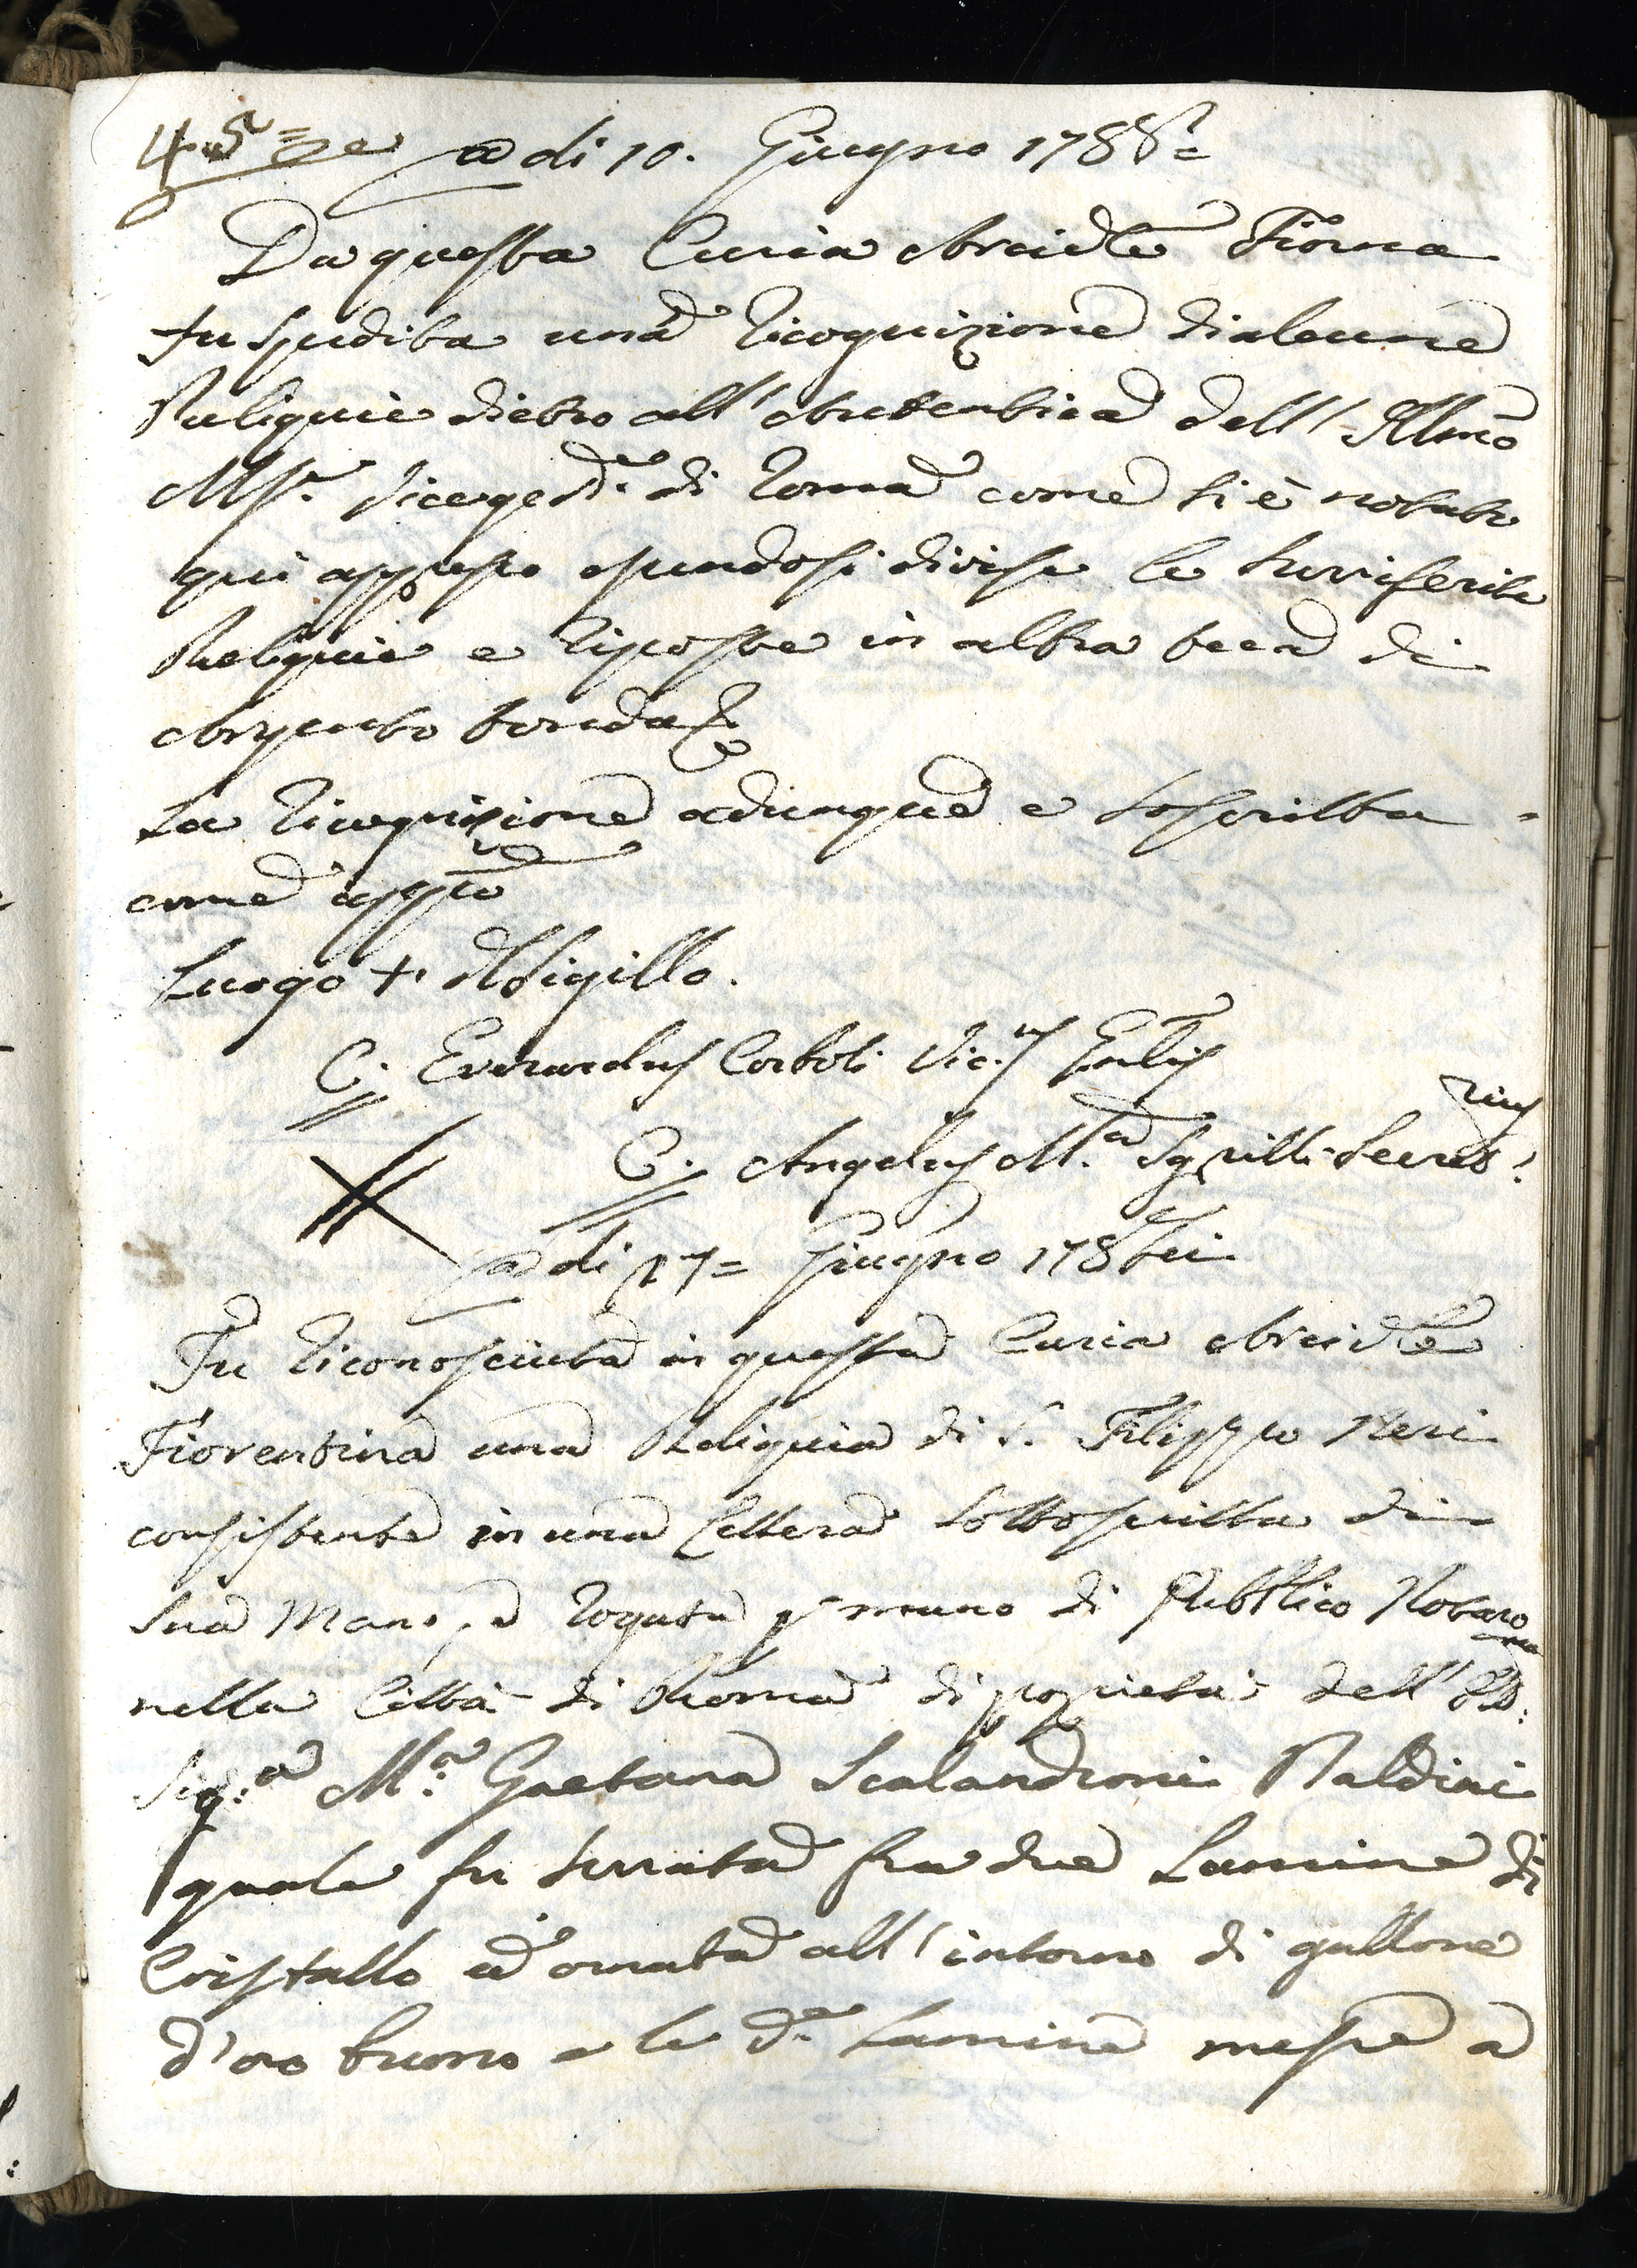 a di 10. Giugno 1786
Da questa Curia Arcidle Fiorna
fu spedita una ricognizione di alcune
Reliquie dietro all'Autentica dell'Illmo
Msr. Viceged. di Roma come si è notato
qui appresso essendosi divise le surriferite
Reliquie e riposte in altra teca di
Argento tonda
La ricognizione adunque e soscritta
come appo
Luogo + del Sigillo.
C. Everardus Corboli Vic.us Gnlis
C. Angelus M.a Sgrilli Secret.rius
a di 17= Giugno 1786
Fu riconosciuta in questa Curia Arcidle
Fiorentina una Reliquia di S. Filippo Neri
consistente in una Lettera sottoscritta di
sua Mano, e rogata p mano di Pubblico Notaro
nella Città di Roma di proprietà dell'Ill:ma
Sig:ra M:a Gaetana Scalandroni Baldini
quale fu serrata fra due Lamine di
Cristallo ed ornata all'intorno di gallone
d'oro buono e le d.e Lamine messe a